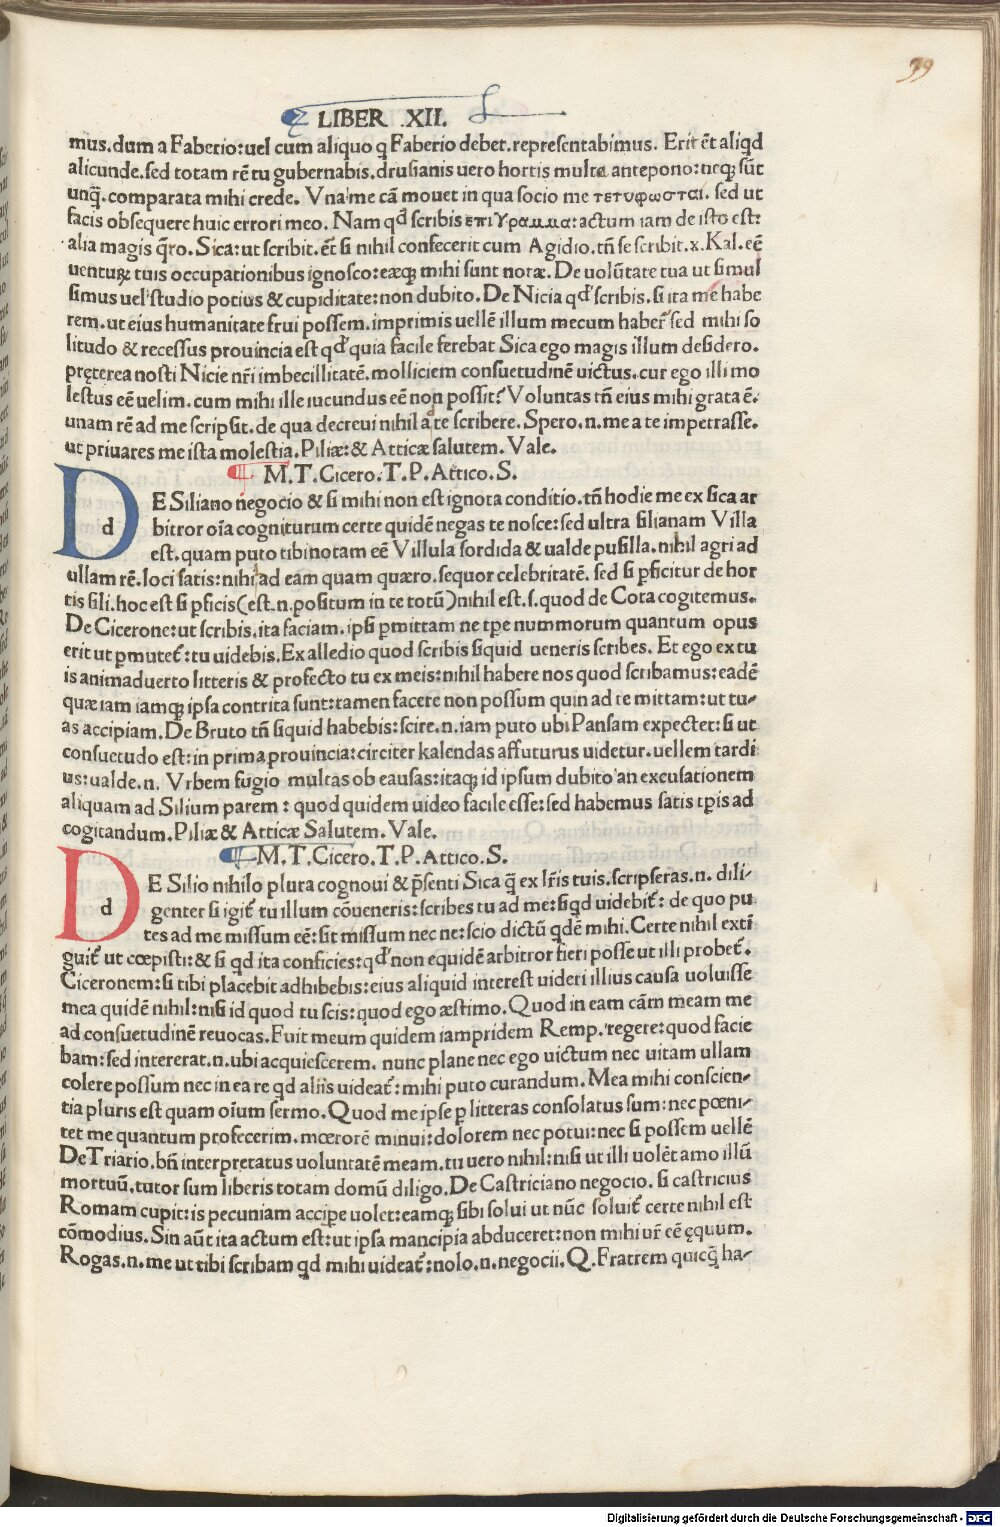 99
LIBER XII.
mus.dum a Faberio:uel cum aliquo q Faberio debet.repręsentabimus. Erit ēt aliqd
alicunde.sed totam rē tu gubernabis.drusianis uero hortis multa antepono:neqꝫ sūt
unq̄.comparata mihi crede. Vna me cā mouet in qua socio me τετυφωσται. sed ut
facis obsequere huic errori meo. Nam qd scribis επιΓραμμα:actum iam de isto est:
alia magis q̄ro. Sica:ut scribit.ēt si nihil confecerit cum Agidio.tn̄ se scribit.x.Kal.eē
uentuꝝ tuis occupationibus ignosco:eæqꝫ mihi sunt notæ. De uolūtate tua ut simul
simus uel studio potius & cupiditate:non dubito. De Nicia qd scribis.si ita me habe
rem.ut eius humanitate frui possem.imprimis uellē illum mecum haber̄ sed mihi so
litudo & recessus prouincia est qd quia facile ferebat Sica ego magis illum desidero.
pręterea nosti Nicie nr̄i imbecillitatē.molliciem consuetudinē uictus.cur ego illi mo
lestus eē uelim.cum mihi ille iucundus eē non possit? Voluntas tn̄ eius mihi grata ē.
unam rē ad me scripsit.de qua decreui nihil a te scribere. Spero.n.me a te impetrasse.
ut priuares me ista molestia.Piliæ:& Atticæ salutem. Vale.
M.T.Cicero.T.P.Attico.S.
d
E Siliano negocio & si mihi non est ignota conditio.tn̄ hodie me ex sica ar
bitror oīa cogniturum certe quidē negas te nosce:sed ultra silianam Villa
est.quam puto tibi notam eē Villula sordida & ualde pusilla.nihil agri ad
ullam rē.loci satis:nihi ad eam quam quæro.sequor celebritatē. sed si ꝑficitur de hor
tis sili.hoc est si ꝑficis(est.n.positum in te totū)nihil est.s.quod de Cota cogitemus.
De Cicerone:ut scribis.ita faciam.ipsi ꝑmittam ne tꝑe nummorum quantum opus
erit ut ꝑmutet̄:tu uidebis.Ex alledio quod scribis siquid ueneris scribes. Et ego ex tu
is animaduerto litteris & profecto tu ex meis:nihil habere nos quod scribamus:eadē
quæ iam iamqꝫ ipsa contrita sunt:tamen facere non possum quin ad te mittam:ut tu-
as accipiam.De Bruto tn̄ siquid habebis:scire.n.iam puto ubi Pansam expectet:si ut
consuetudo est:in prima prouincia:circiter kalendas affuturus uidetur.uellem tardi
us:ualde.n. Vrbem fugio multas ob eausas:itaqꝫ id ipsum dubito an excusationem
aliquam ad Silium parem : quod quidem uideo facile esse:sed habemus satis tꝑis ad
cogitandum.Piliæ & Atticæ Salutem. Vale.
M.T.Cicero.T.P.Attico.S.
d
E Silio nihilo plura cognoui & p̄senti Sica q̄ ex lr̄is tuis.scripseras.n. dili-
genter si igit̄ tu illum cōueneris:scribes tu ad me:siqd uidebit̄: de quo pu
tes ad me missum eē:sit missum nec ne:scio dictū qdē mihi.Certe nihil exti
guit̄ ut cœpisti:& si qd ita conficies:qd non equidē arbitror fieri posse ut illi probet̄.
Ciceronem:si tibi placebit adhibebis:eius aliquid interest uideri illius causa uoluisse
mea quidē nihil:nisi id quod tu scis:quod ego æstimo. Quod in eam cām meam me
ad consuetudinē reuocas.Fuit meum quidem iampridem Remp.regere:quod facie
bam:sed intererat.n.ubi acquiescerem. nunc plane nec ego uictum nec uitam ullam
colere possum nec in ea re qd aliis uideat̄:mihi puto curandum.Mea mihi conscien-
tia pluris est quam oīum sermo.Quod me ipse ꝑ litteras consolatus sum:nec pœni-
tet me quantum profecerim.mœrorē minui:dolorem nec potui:nec si possem uellē
De Triario.bn̄ interpretatus uoluntatē meam.tu uero nihil:nisi ut illi uolēt amo illū
mortuū.tutor sum liberis totam domū diligo.De Castriciano negocio. si castricius
Romam cupit:is pecuniam accipe uolet:eamqꝫ sibi solui ut nūc soluit̄ certe nihil est
cōmodius.Sin aūt ita actum est:ut ipsa mancipia abduceret:non mihi ur̄ eē ęquum.
Rogas.n.me ut tibi scribam qd mihi uideat̄:nolo.n.negocii.Q.Fratrem quicq̄ ha-
Digitalisierung gefördert durch die Deutsche Forschungsgemeinschaft - DFG